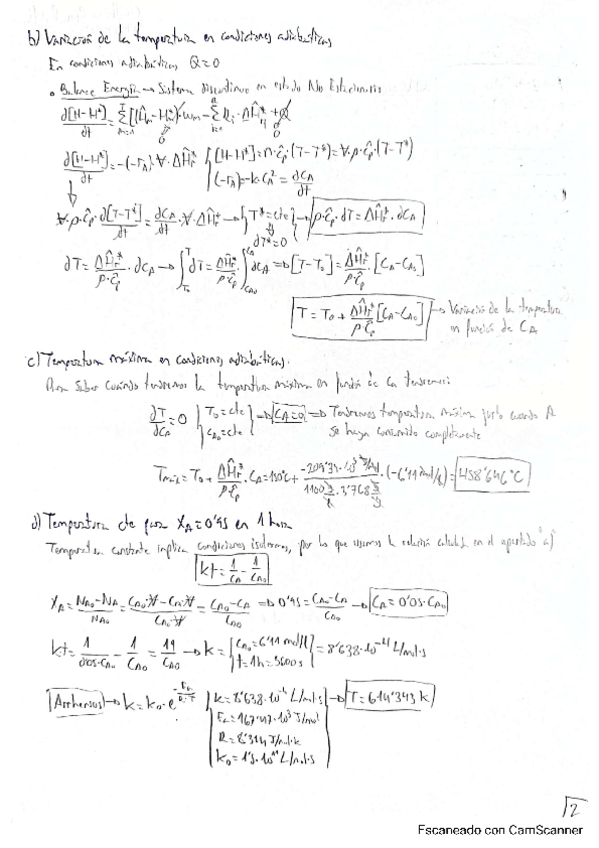 b) Variación de la temperatura en condiciones adiabáticas
En condiciones adiabáticas Q=0
• Balance Energía → Sistema discontinuo en estado No Estacionario
d[H-H*]/dt = Σ[(Ĥm-Hm*)]·wm - Σ Ri·ΔĤri* + Q
d[H-H*]/dt = -(-rA)·V·ΔĤr* { [H-H*]=n·ĉp·(T-T*)=V·ρ·ĉp·(T-T*)
(-rA)=-k·CA²=dCA/dt
V·ρ·ĉp·d[T-T*]/dt = dCA/dt·V·ΔĤr* → { T*=cte dT*=0 } → ρ·ĉp·dT=ΔĤr*·dCA
dT = ΔĤr*/ρ·ĉp · dCA → ∫dT = ΔĤr*/ρ·ĉp ∫dCA ⇒ [T-T0] = ΔĤr*/ρ·ĉp · [CA-CA0]
T = T0 + ΔĤr*/ρ·ĉp [CA-CA0] → Variación de la temperatura
en función de CA
c) Temperatura máxima en condiciones adiabáticas.
Para saber cuándo tendremos la temperatura máxima en función de CA tendremos:
dT/dCA = 0 { T0=cte CA0=cte } → CA=0 ⇒ Tendremos temperatura máxima justo cuando A
se haya consumido completamente
d) Temperatura cte para XA=0'95 en 1 hora
Temperatura constante implica condiciones isotermas, por lo que usamos la relación calculada en el apartado "a)"
kt = 1/CA - 1/CA0
XA = NA0-NA/NA0 = CA0·V-CA·V/CA0·V = CA0-CA/CA0 ⇒ 0'95 = CA0-CA/CA0 → CA=0'05·CA0
kt = 1/0'05·CA0 - 1/CA0 = 19/CA0 → k = { CA0=6'11 mol/l t=1h=3600s } = 8'638·10⁻⁴ L/mol·s
Arrhenius → k=k0·e^(-Ea/R·T) { k=8'638·10⁻⁴ L/mol·s → T=614'343 K
R=8'314 J/mol·k
√2
Escaneado con CamScanner